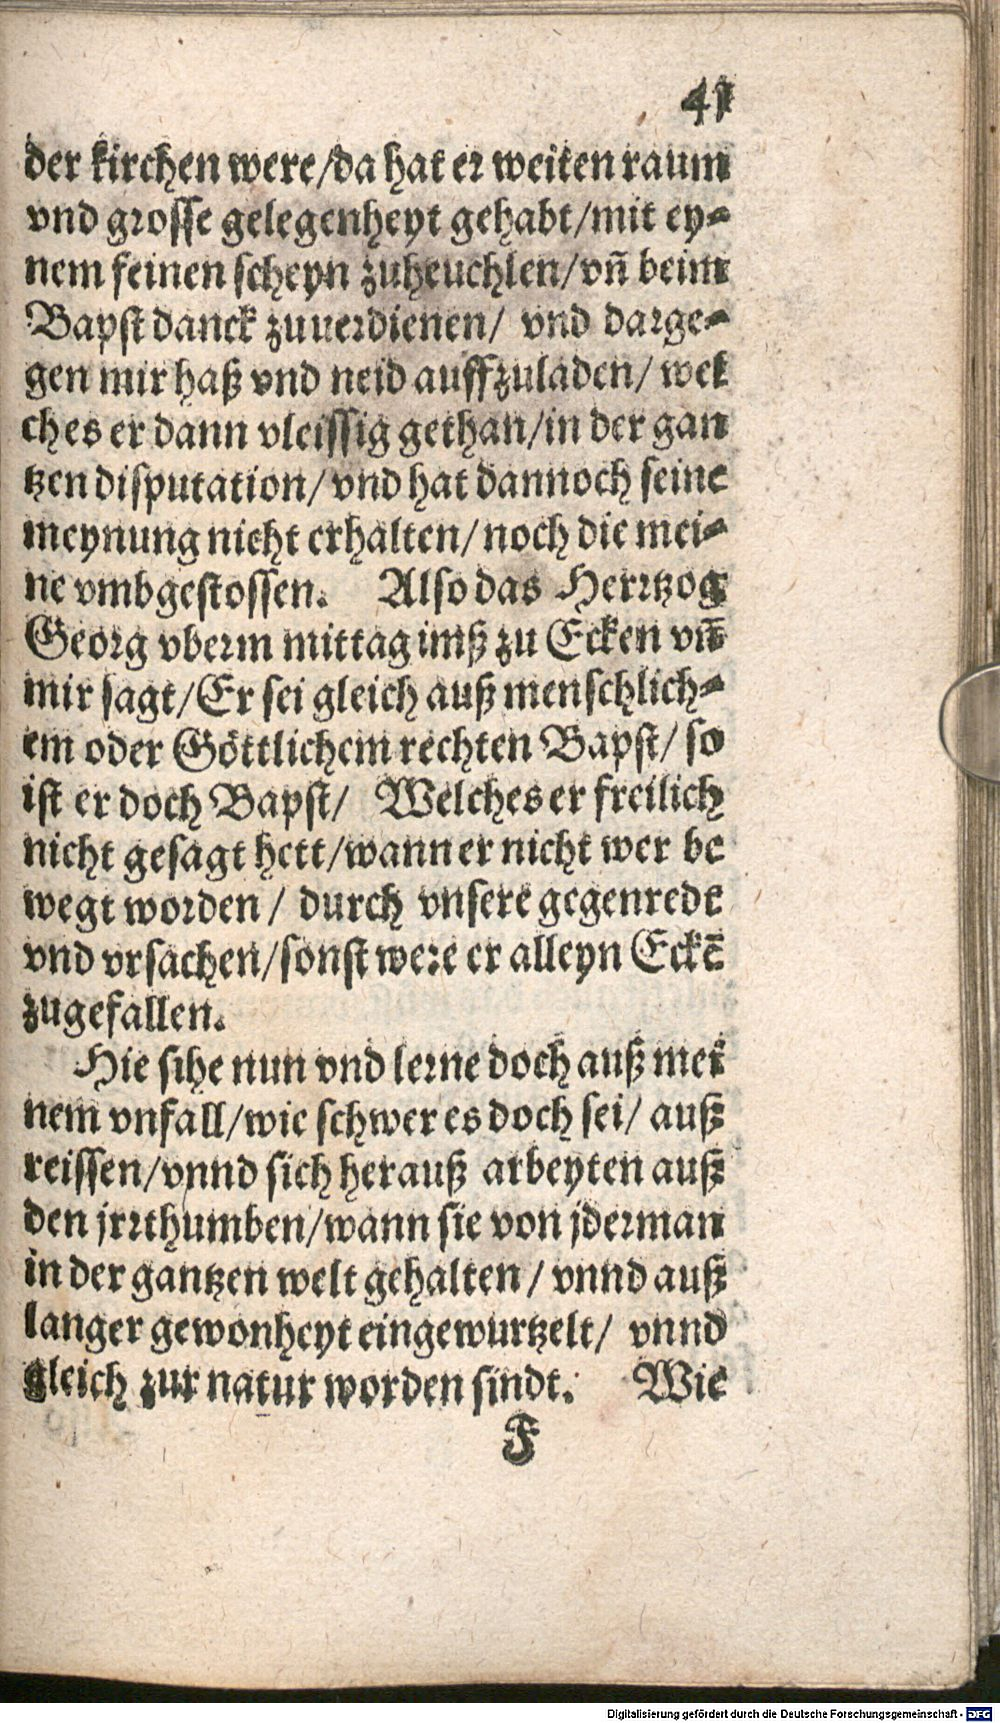 41
der kirchen were/da hat er weiten raum
vnd grosse gelegenheyt gehabt/mit ey-
nem feinen scheyn zuheuchlen/vñ beim
Bapst danck zuuerdienen/ vnd darge-
gen mir haß vnd neid auffzuladen/ wel
ches er dann vleissig gethan/in der gan
tzen disputation/vnd hat dannoch seine
meynung nicht erhalten/noch die mei-
ne vmbgestossen. Also das Herrtzog
Georg vberm mittag imß zu Ecken vñ
mir sagt/Er sei gleich auß menschlich-
em oder Göttlichem rechten Bapst/ so
ist er doch Bapst/ Welches er freilich
nicht gesagt hett/wann er nicht wer be
wegt worden/ durch vnsere gegenrede
vnd vrsachen/sonst were er alleyn Eckē
zugefallen.
Hie sihe nun vnd lerne doch auß mei
nem vnfall/wie schwer es doch sei/ auß
reissen/vnnd sich herauß arbeyten auß
den jrrthumben/wann sie von jderman
in der gantzen welt gehalten/ vnnd auß
langer gewonheyt eingewurtzelt/ vnnd
gleich zur natur worden sindt. Wie
F
Digitalisierung gefördert durch die Deutsche Forschungsgemeinschaft - DFG